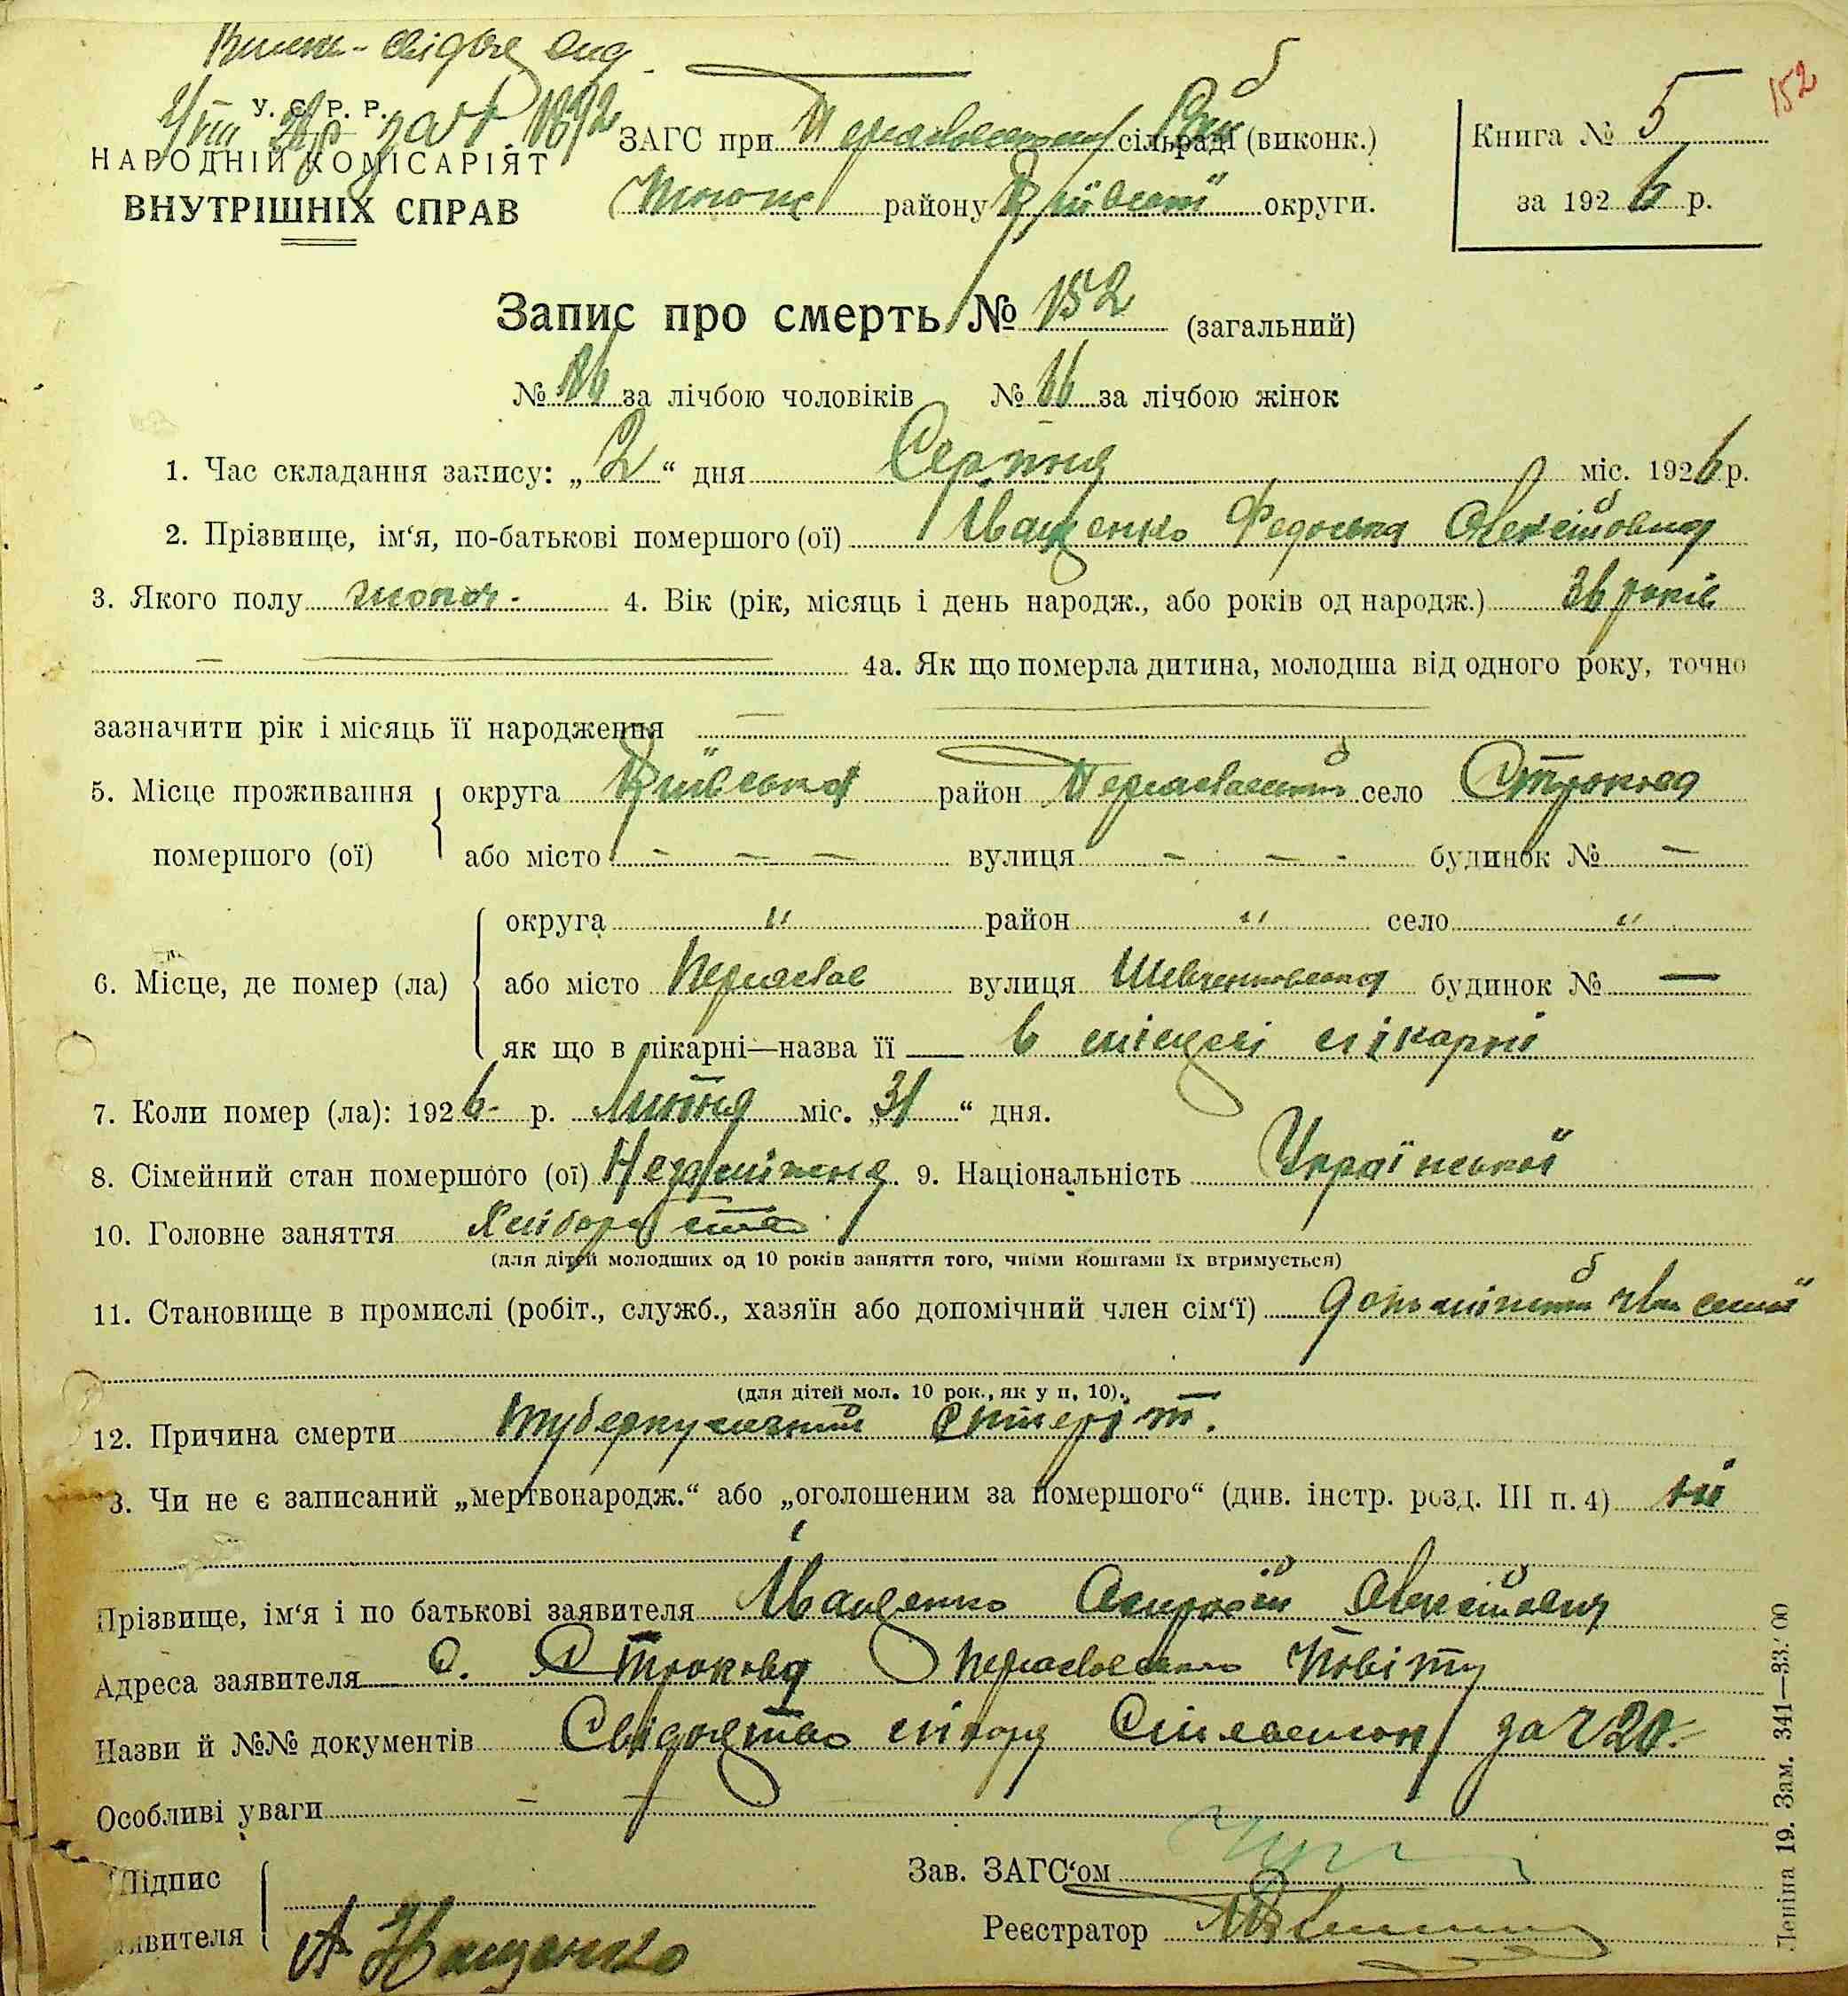 152
У. С. Р. Р.
НАРОДНІЙ КОМІСАРІЯТ
ВНУТРІШНІХ СПРАВ
ЗАГС при Переяславським сільраді (виконк.)
району Київської округи.
Книга № 5
за 1926 р.
Запис про смерть № 152 (загальний)
№ 86 за лічбою чоловіків № 66 за лічбою жінок
1. Час складання запису: „2“ дня Серпня міс. 1926 р.
2. Прізвище, ім‘я, по-батькові помершого (ої) Іващенко Федоська Олексіївна
3. Якого полу жіноч. 4. Вік (рік, місяць і день народж., або років од народж.) 36 років
4а. Як що померла дитина, молодша від одного року, точно
зазначити рік і місяць її народження —
5. Місце проживання помершого (ої) округа Київська район Переяславський село Строкова
або місто — — — вулиця — — - будинок № —
6. Місце, де помер (ла) округа " район " село "
або місто Переяслав вулиця Шевченковська будинок № —
як що в лікарні—назва її — в міській лікарні
7. Коли помер (ла): 1926 р. Липня міс. „31“ дня.
8. Сімейний стан помершого (ої) Незаміжня 9. Національність Української
10. Головне заняття Хліборобство
(для дітей молодших од 10 років заняття того, чиїми коштами їх втримується)
11. Становище в промислі (робіт., служб., хазяїн або допомічний член сім‘ї) допоміжний член сімї
(для дітей мол. 10 рок., як у п. 10).
12. Причина смерти туберкульозний
3. Чи не є записаний „мертвонародж.“ або „оголошеним за помершого“ (див. інстр. розд. III п. 4) ні
Прізвище, ім‘я і по батькові заявителя Іващенко Олексійович
Адреса заявителя с. Строкова Переяславського Повіту
Назви й №№ документів Свідоцтво лікаря за № 20
Особливі уваги — —
Зав. ЗАГС‘ом
Підпис
явителя А Іващенко
Реєстратор
Леніна 19. Зам. 341—33.